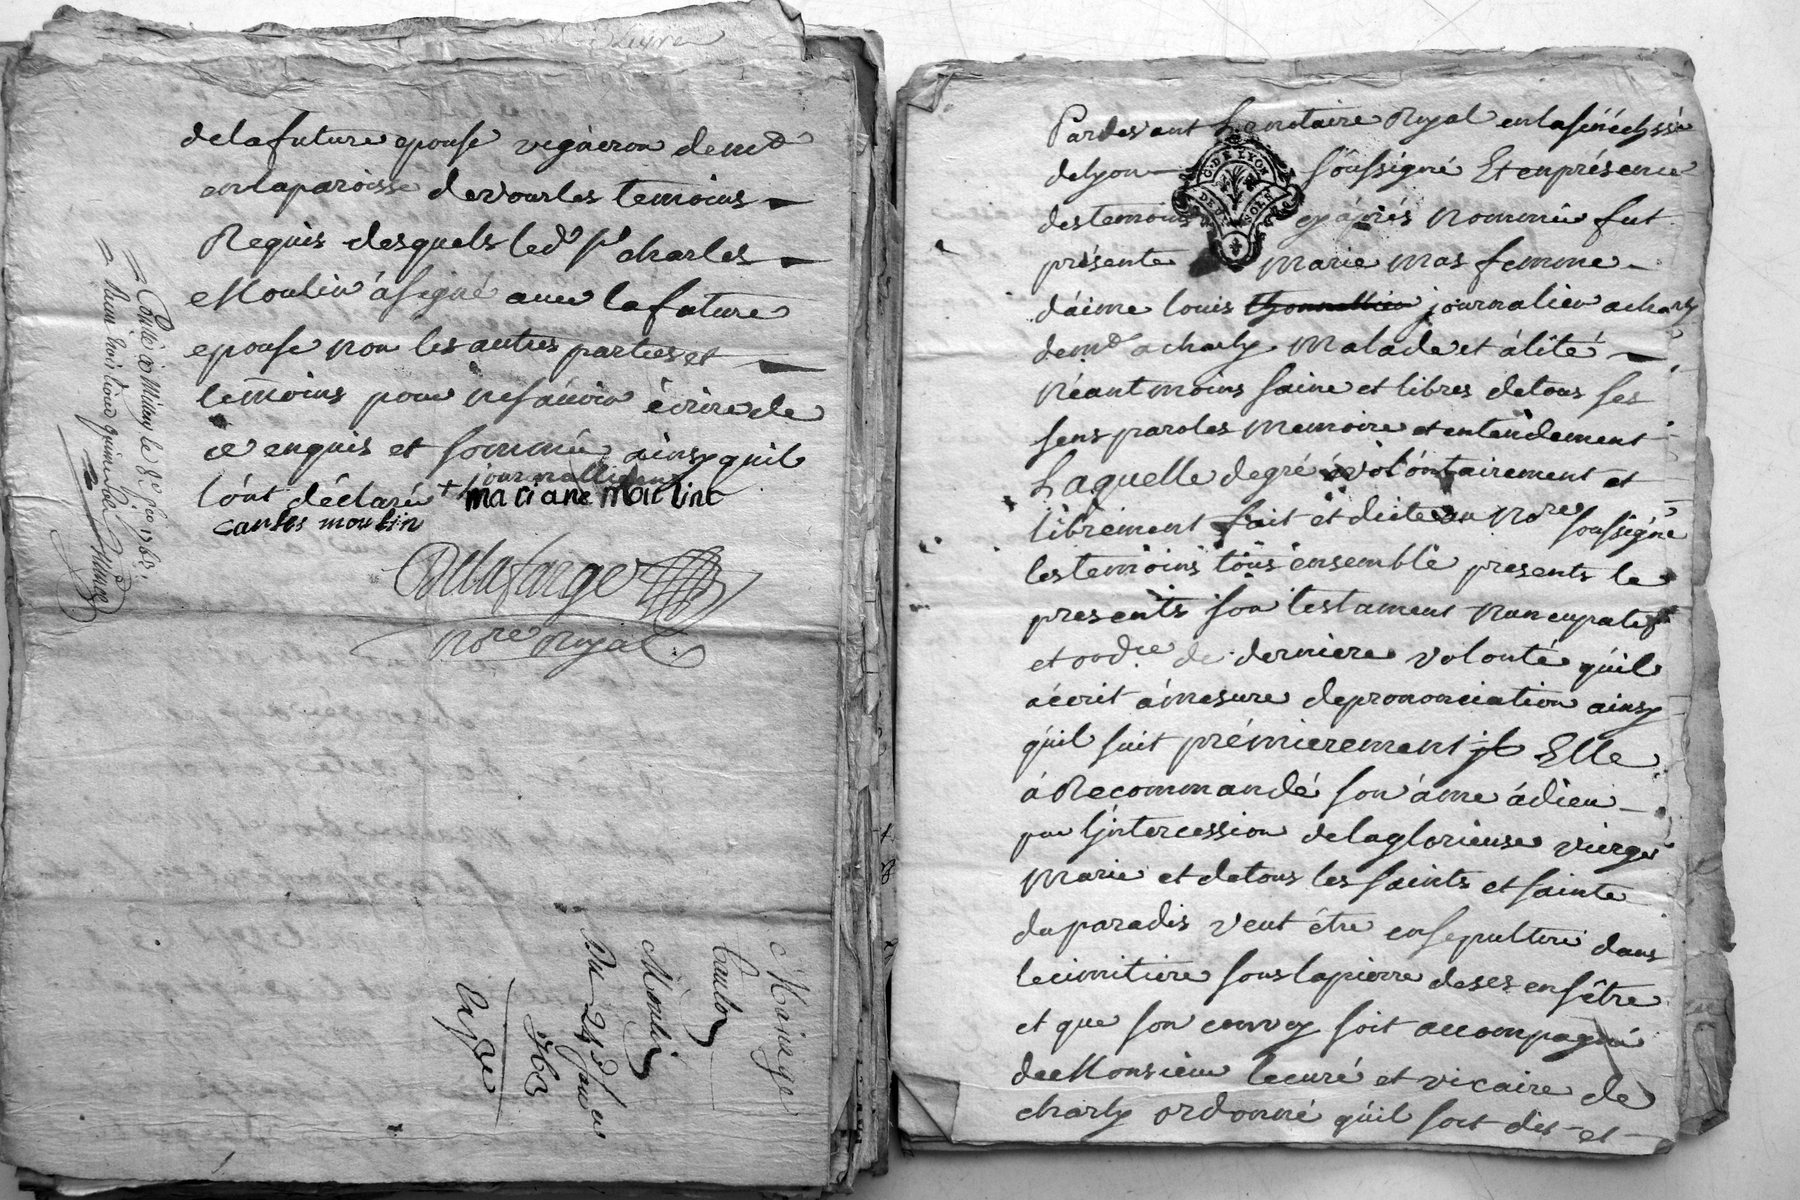 delafuture epouse vigneron dem.d
enlaparoisse devourles temoins
Requis desquels led.t s.r charles
Moulin à signé avec lafuture
epouse non les autres parties et
temoins pour nesavoir écrire de
ce enquis et sommé ainsy quil
lont déclaré +
mariane martine
carles moulin
Delafarge
no.re royal
Conté à Millery le 8.e feo 1763.
Mariage
Moulin
Du 24.e Janv.er
1763
Par devant Le notaire Royal enlasénéchssée
delyon soussigné Et enprésence
destemoins cy áprés nommée fut
présente marie mas femme
d'aime louis journalier a charly
dem.t a charly malade et álité
néantmoins saine et libres detous ses
sens paroles memoire et entendement
Laquelle degré volontairement et
librement fait et dicté au no.re soussigné
les temoins tous ensemble presents le
presents son testament nuncupatif
et ordre de derniere volonté quil
aécrit ámesure deprononciation ainsy
quil suit prémierement Elle
á Recommandé son áme ádieu
par L'intercession delaglorieuse vierge
marie et detous les saints et sainte
du paradis veut être ensepulturé dans
lecimitiere sous lapierre deses ensêtre
et que son convoy soit accompagné
de Monsieur lecuré et vicaire de
charly ordonné quil soit dit et
C. DE LYON